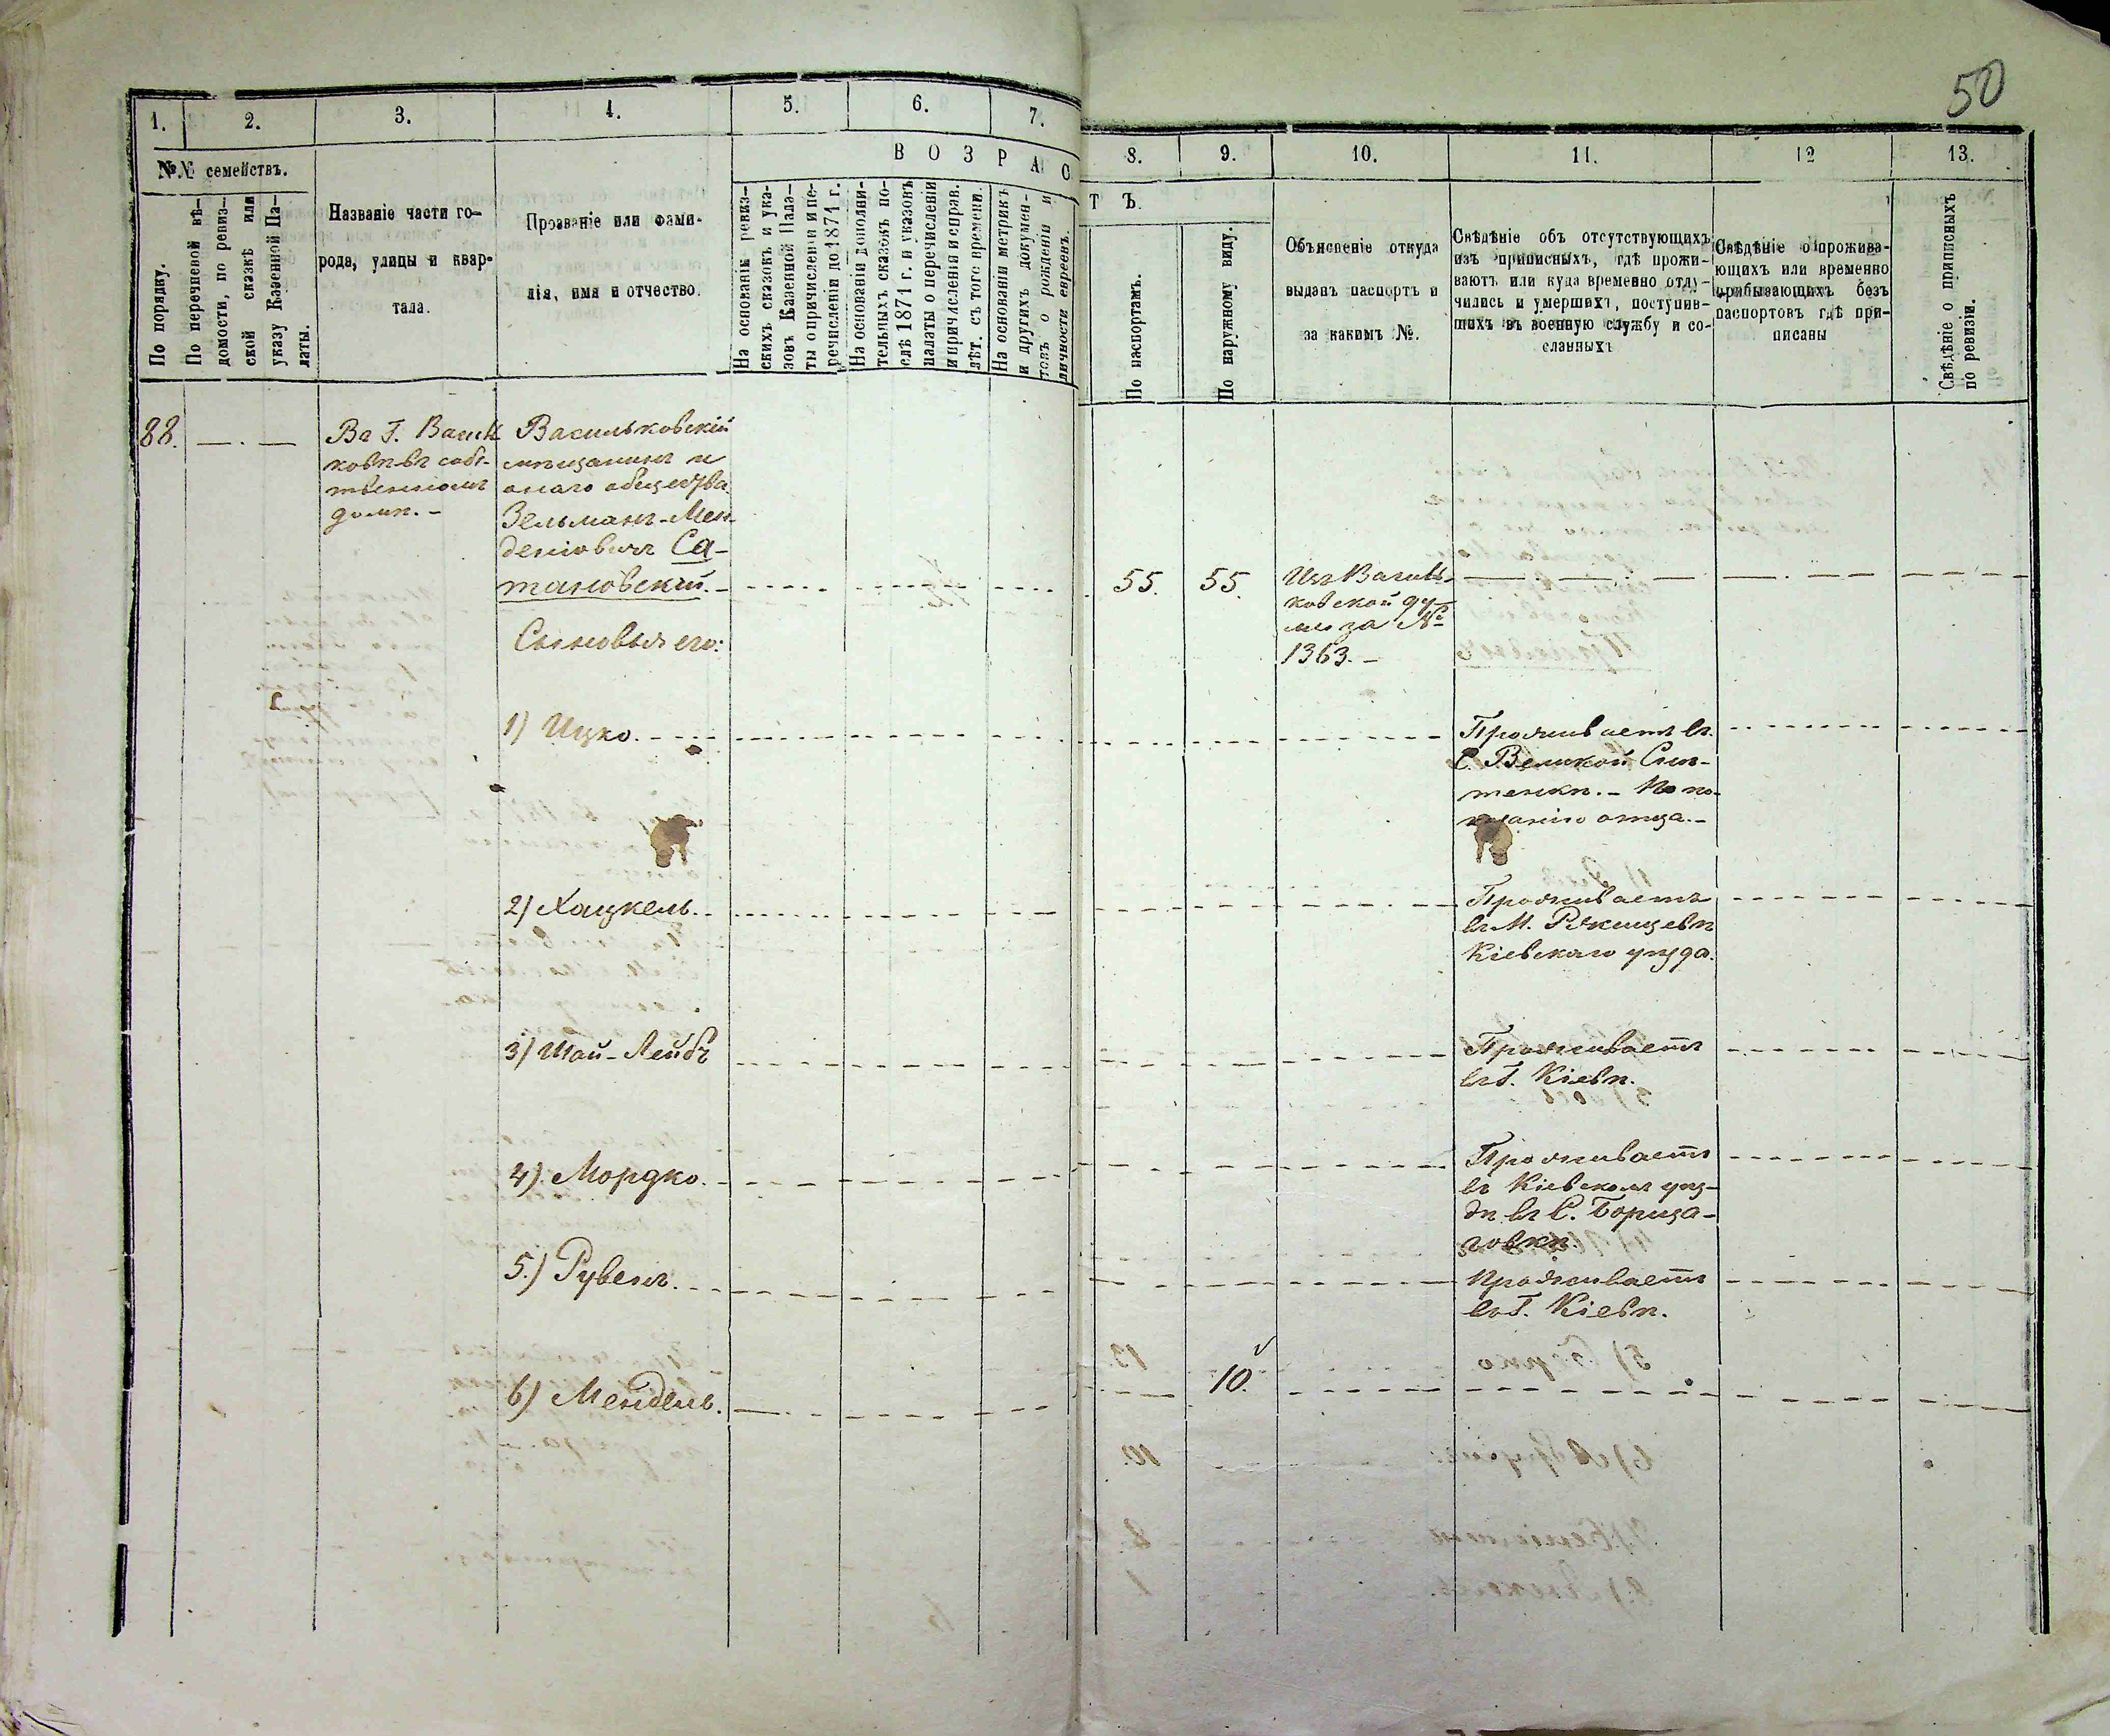 50
1.
2.
3.
4.
5.
6.
7.
8.
9.
10.
11.
12
13.
№№ семействъ.
ВОЗРАС
ТЪ.
По порядку.
По перечневой вѣ-
домости, по ревиз-
ской сказкѣ или
указу Казенной Па-
латы.
Названіе части го-
рода, улицы и квар-
тала.
Прозваніе или фами-
лія, имя и отчество.
На основаніи ревиз-
скихъ сказокъ и ука-
зовъ Казенной Пала-
ты о причисленіи и пе-
речисленіи до 1871 г.
На основаніи дополни-
тельныхъ сказокъ по-
слѣ 1871 г. и указовъ
палаты о перечисленіи
и причисленіи и справ.
лѣт. съ того времени.
На основаніи метрикъ
и другихъ докумен-
товъ о рожденіи и
личности евреевъ.
По паспортамъ.
По наружному виду.
Объясненіе откуда
выданъ паспортъ и
за какимъ №.
Свѣдѣніе объ отсутствующихъ
изъ приписныхъ, гдѣ прожи-
ваютъ или куда временно отлу-
чились и умершихъ, поступив-
шихъ въ военную службу и со-
сланныхъ
Свѣдѣніе о прожива-
ющихъ или временно
прибывающихъ безъ
паспортовъ гдѣ при-
писаны
Свѣдѣніе о приписныхъ
по ревизіи.
88.
Въ Г. Василь
ковѣ въ собс-
твенномъ
домѣ.-
Васильковскій
мѣщанинъ и
онаго общества
Зельманъ-Мен-
деліовичъ Са-
тановскій.-
55.
55.
Изъ Василь-
ковской ду-
мы за №
1363.-
Сыновья его:
1) Ицко.
Проживаетъ въ
С. Великой Сни-
тенкѣ.- По по-
казанію отца.-
2) Хацкель.
Проживаетъ
въ М. Ржищевѣ
Кіевскаго уѣзда.
3) Шай-Лейбъ
Проживаетъ
въ Г. Кіевѣ.
4) Мордко.
Проживаетъ
въ Кіевскомъ уѣз-
дѣ въ С.
5.) Рувенъ.
Проживаетъ
въ Г. Кіевѣ.
6) Мендель.
10.